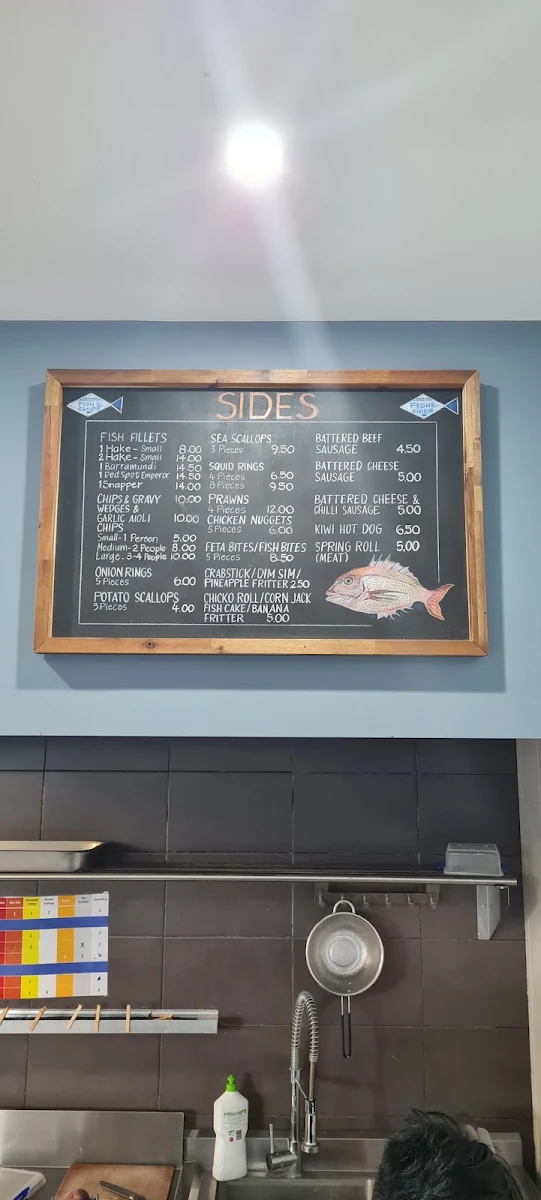 SIDES
FISH &
CHIPS
FISH &
CHIPS
FISH FILLETS
1 Hake - Small 8.00
2 Hake - Small 14.00
1 Barramundi 14.50
1 Red Spot Emperor 14.50
1 Snapper 14.00
CHIPS & GRAVY 10.00
WEDGES &
GARLIC AIOLI 10.00
CHIPS
Small-1 Person 5.00
Medium-2 People 8.00
Large-3-4 People 10.00
ONION RINGS
5 Pieces 6.00
POTATO SCALLOPS
3 Pieces 4.00
SEA SCALLOPS
3 Pieces 9.50
SQUID RINGS
4 Pieces 6.50
8 Pieces 9.50
PRAWNS
4 Pieces 12.00
CHICKEN NUGGETS
5 Pieces 6.00
FETA BITES/FISH BITES
5 Pieces 8.50
CRABSTICK/DIM SIM/
PINEAPPLE FRITTER 2.50
CHICKO ROLL/CORN JACK
FISH CAKE/BANANA
FRITTER 5.00
BATTERED BEEF
SAUSAGE 4.50
BATTERED CHEESE
SAUSAGE 5.00
BATTERED CHEESE &
CHILLI SAUSAGE 5.00
KIWI HOT DOG 6.50
SPRING ROLL 5.00
(MEAT)